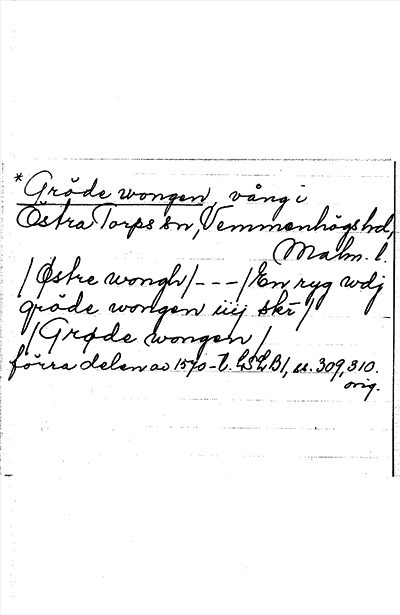 *Gröde wongen, vång i
Östra Torps sn, Vemmenhögs hd,
Malm. l.
/Østre wongh/ - - - /En ryg wdj
grøde wongen iiij skr/
/Grøde wongen/
förra delen av 1570-t. LSLB1, ss. 309, 310.
orig.